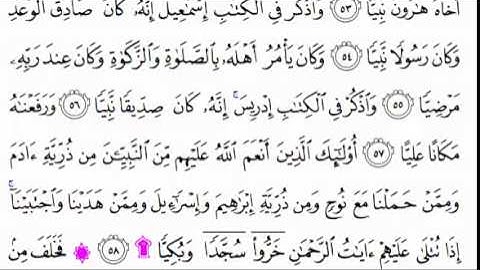 أَخَاهُ هَٰرُونَ نَبِيًّا ٥٣ وَٱذۡكُرۡ فِي ٱلۡكِتَٰبِ إِسۡمَٰعِيلَۚ إِنَّهُۥ كَانَ صَادِقَ ٱلۡوَعۡدِ
وَكَانَ رَسُولٗا نَّبِيّٗا ٥٤ وَكَانَ يَأۡمُرُ أَهۡلَهُۥ بِٱلصَّلَوٰةِ وَٱلزَّكَوٰةِ وَكَانَ عِندَ رَبِّهِۦ
مَرۡضِيّٗا ٥٥ وَٱذۡكُرۡ فِي ٱلۡكِتَٰبِ إِدۡرِيسَۚ إِنَّهُۥ كَانَ صِدِّيقٗا نَّبِيّٗا ٥٦ وَرَفَعۡنَٰهُ
مَكَانًا عَلِيًّا ٥٧ أُوْلَٰٓئِكَ ٱلَّذِينَ أَنۡعَمَ ٱللَّهُ عَلَيۡهِم مِّنَ ٱلنَّبِيِّـۧنَ مِن ذُرِّيَّةِ ءَادَمَ
وَمِمَّنۡ حَمَلۡنَا مَعَ نُوحٖ وَمِن ذُرِّيَّةِ إِبۡرَٰهِيمَ وَإِسۡرَٰٓءِيلَ وَمِمَّنۡ هَدَيۡنَا وَٱجۡتَبَيۡنَآۚ
إِذَا تُتۡلَىٰ عَلَيۡهِمۡ ءَايَٰتُ ٱلرَّحۡمَٰنِ خَرُّواْۤ سُجَّدٗاۤ وَبُكِيّٗا ۩ ٥٨ ۞ فَخَلَفَ مِنۢ